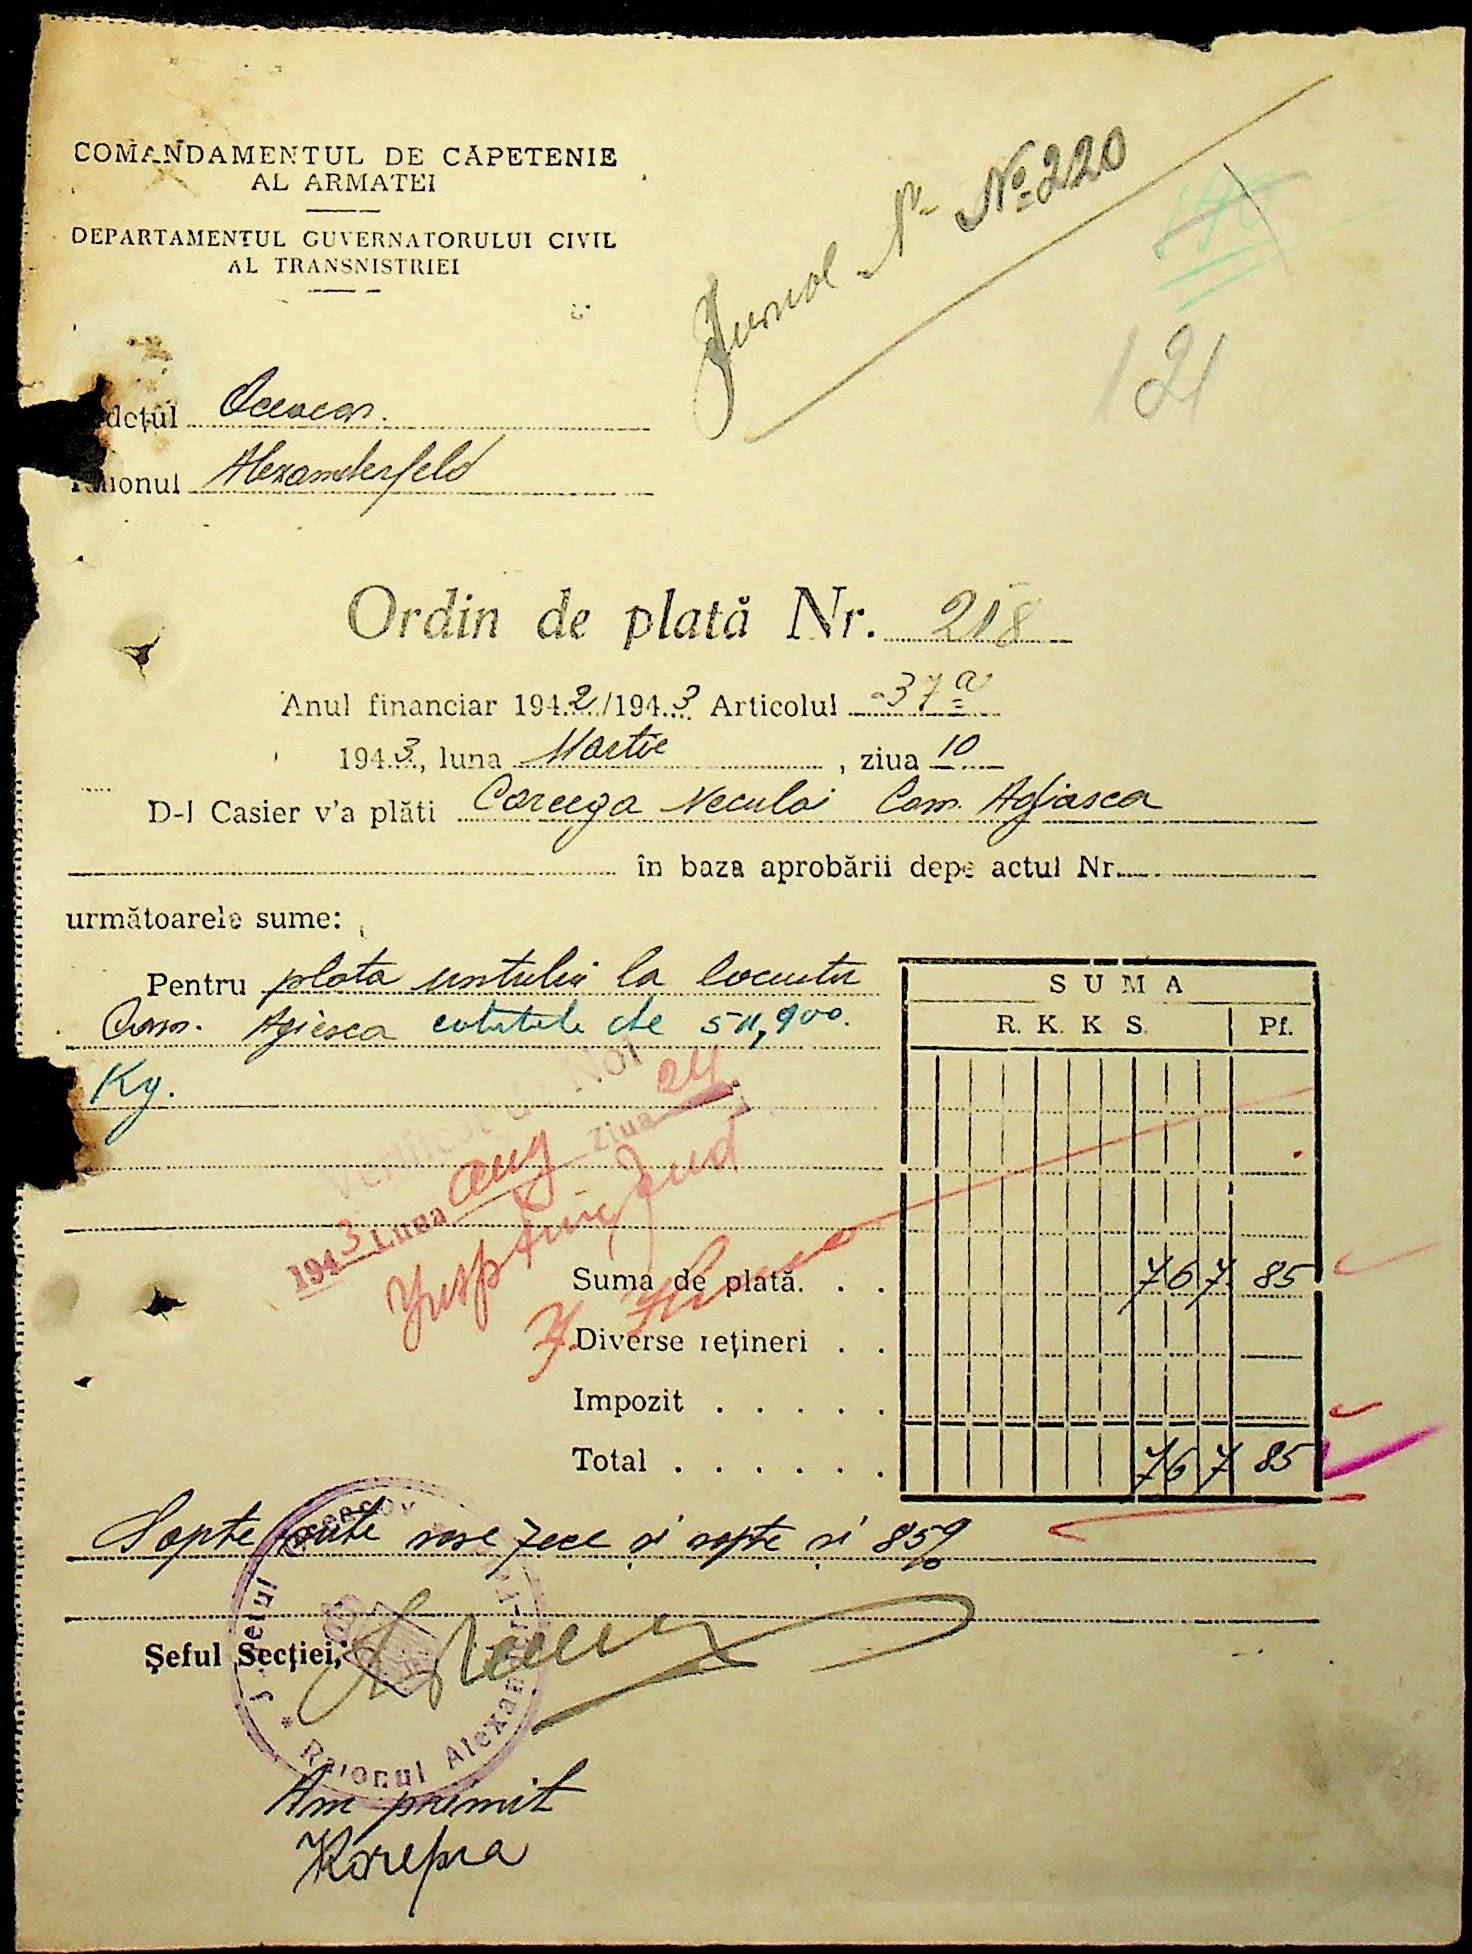 COMANDAMENTUL DE CAPETENIE
AL ARMATEI
DEPARTAMENTUL GUVERNATORULUI CIVIL
AL TRANSNISTRIEI
Jurnal Nº 220
140
121
dețul Oceacov.
ionul Alexanderfeld
Ordin de plată Nr. 218
Anul financiar 1942/1943 Articolul 37 a
1943, luna Martie, ziua 10
D-l Casier v'a plăti Careega Neculai Com. Agiasca
în baza aprobării depe actul Nr.
următoarele sume:
Pentru plata untului la locuitor
Com. Agiesca cotitele de 511,900.
Kg.
SUMA
R. K. K S. Pf.
Verificat de Noi
1943 Luna aug ziua 24
Suma de plată. . . 767 85
Diverse rețineri . .
Impozit . . . . .
Total . . . . . . 767 85
Șapte sute șase zece și șapte și 85%
Șeful Secției,
Județul Oceacov
* Raionul Alexan
Am primit